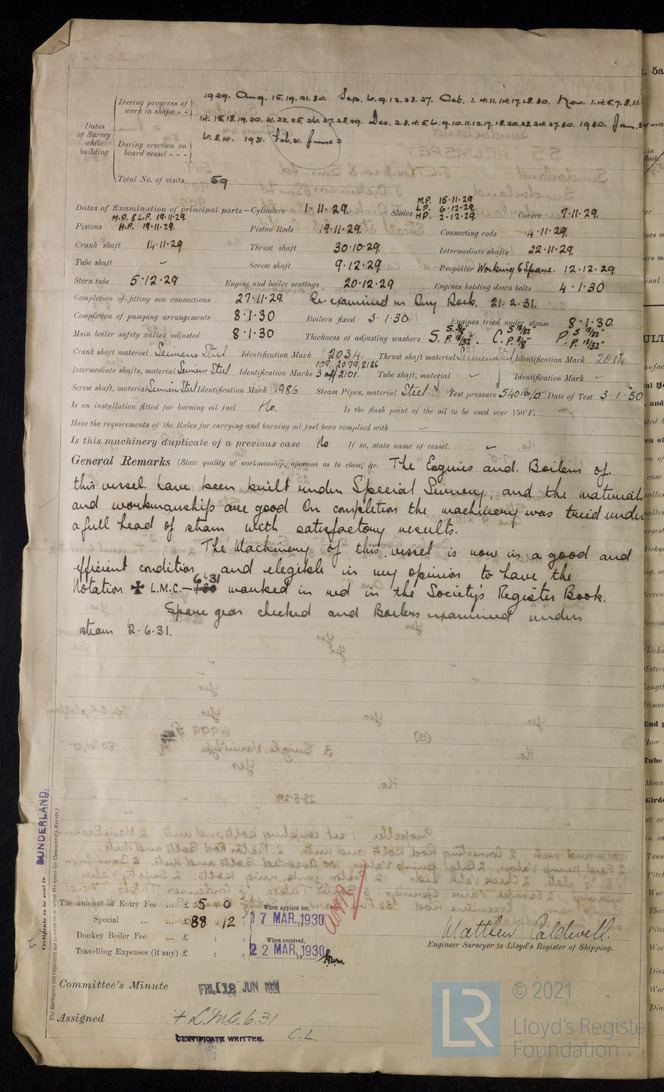 Dates of Survey while building
During progress of work in shops - -
1929. Aug. 15.19.21.30. Sep. 6.9.12.23.27. Oct. 1.4.11.14.17.18.30. Nov. 1.4.5.7.8.11.
14.15.18.19.20.21.22.25.26.27.28.29. Dec. 2.3.4.5.6.9.10.11.12.17.18.20.23.24.27.30. 1930. Jan.
During erection on board vessel - - -
6.8.14. 1931. Feb. 21. June 2
Total No. of visits 59
Dates of Examination of principal parts—Cylinders 1.11.29. Slides M.P. 15.11.29 L.P. 6.12.29 H.P. 2.12.29. Covers 7.11.29.
Pistons M.P. & L.P. 19.11.29 H.P. 19.11.29. Piston Rods 19.11.29. Connecting rods 4.11.29.
Crank shaft 14.11.29 Thrust shaft 30.10.29. Intermediate shafts 22.11.29.
Tube shaft – Screw shaft 9.12.29. Propeller Working & Spare. 12.12.29
Stern tube 5.12.29 Engine and boiler seatings 20.12.29 Engines holding down bolts 4.1.30
Completion of fitting sea connections 27.11.29 Re examined in Dry Dock. 21.2.31.
Completion of pumping arrangements 8.1.30 Boilers fixed 3.1.30 Engines tried under steam 8.1.30.
Main boiler safety valves adjusted 8.1.30 Thickness of adjusting washers
Crank shaft material Siemens Steel Identification Mark 2034. Thrust shaft material Siemens Steel Identification Mark 2014
Intermediate shafts, material Siemens Steel Identification Marks 2079, 2126 3 off 2101. Tube shaft, material – Identification Mark –
Screw shaft, material Siemens Steel Identification Mark 1986 Steam Pipes, material Steel Test pressure 540 lb/□" Date of Test 3.1.30
Is an installation fitted for burning oil fuel No. Is the flash point of the oil to be used over 150°F. –
Have the requirements of the Rules for carrying and burning oil fuel been complied with –
Is this machinery duplicate of a previous case No If so, state name of vessel. –
General Remarks (State quality of workmanship, opinions as to class, &c. The Engines and Boilers of
this vessel have been built under Special Survey, and the materials
and workmanship are good On completion the machinery was tried under
a full head of steam with satisfactory results.
The Machinery of this vessel is now in a good and
efficient condition and elegible in my opinion to have the
Notation ✠ L.M.C.— 6.31 marked in red in the Society's Register Book.
Spare gear checked and Boilers examined under
steam 2.6.31.
SUNDERLAND.
Certificate to be sent to
The amount of Entry Fee ... £ 5 : 0 When applied for,
Special ... ... £ 88 : 12 17 MAR. 1930
Donkey Boiler Fee ... ... £ : When received,
Travelling Expenses (if any) £ : 22 MAR. 1930
Matthew Caldwell.
Engineer Surveyor to Lloyd's Register of Shipping.
Committee's Minute FRI. 12 JUN 1931
Assigned + L.M.C. 6.31
CERTIFICATE WRITTEN. C.L.
LR
© 2021
Lloyd's Register
Foundation